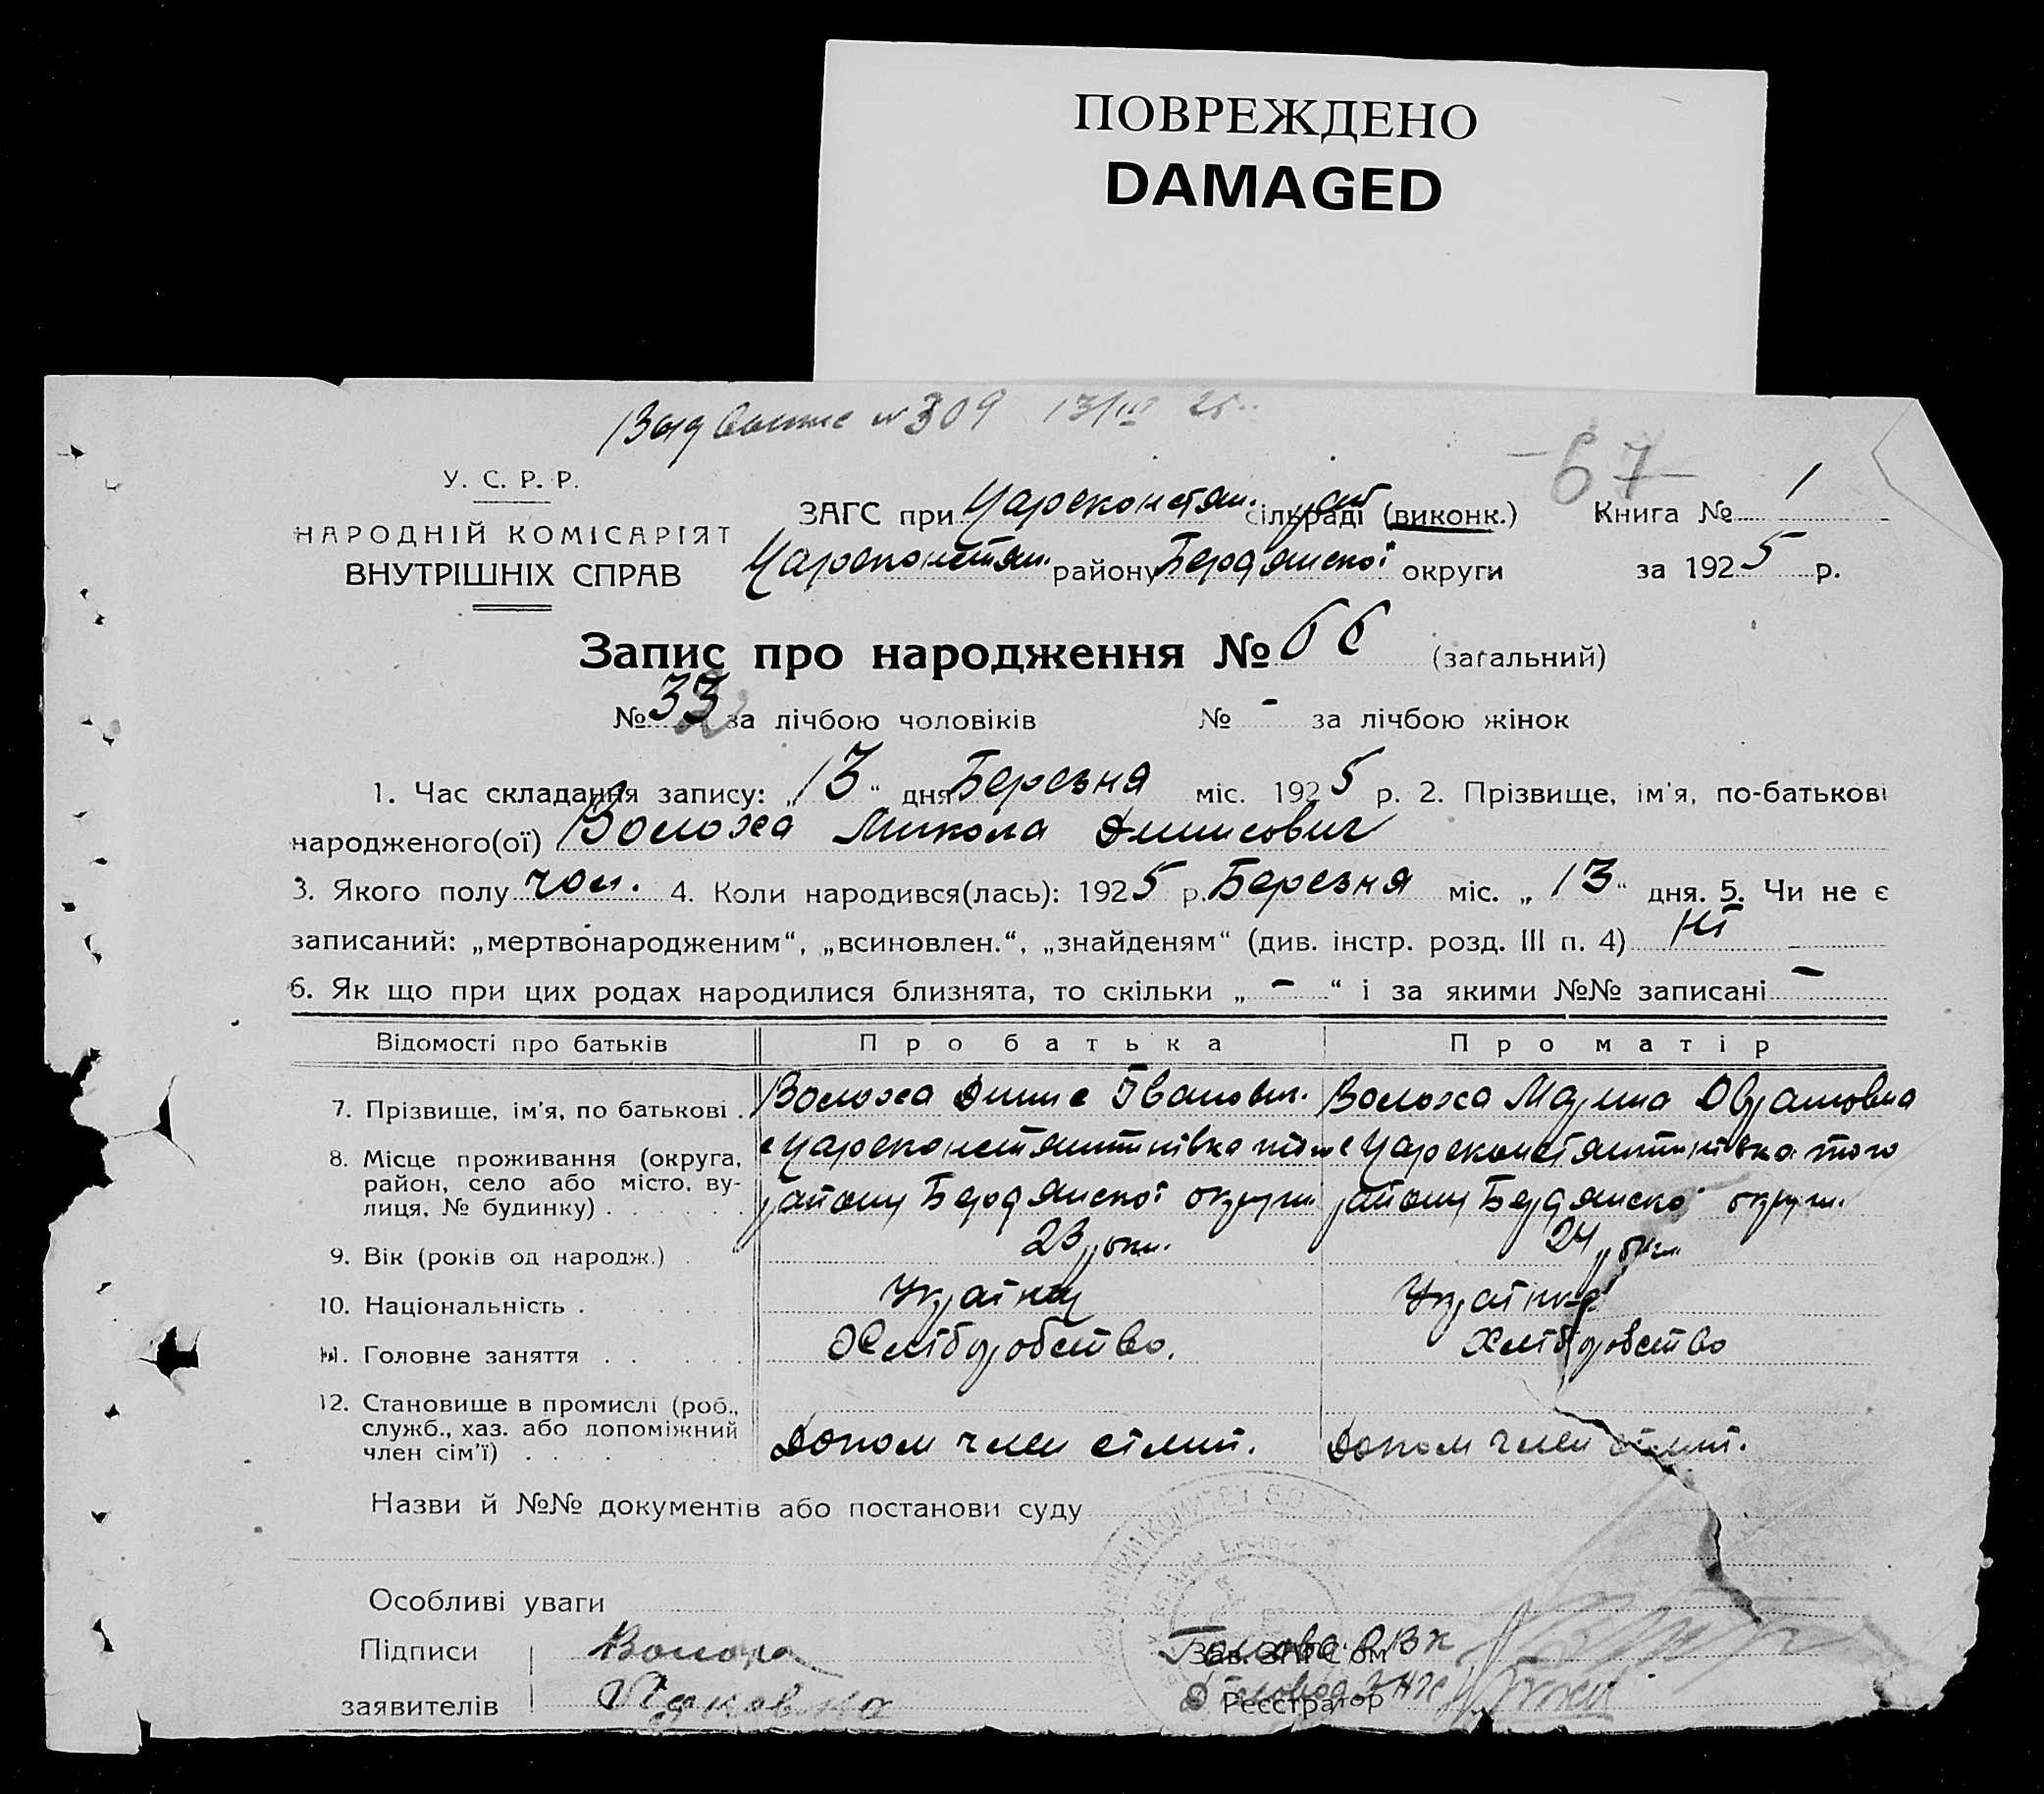 ПОВРЕЖДЕНО
DAMAGED
№ 309 13/III 25
67
У. С. Р. Р.
НАРОДНІЙ КОМІСАРІЯТ
ВНУТРІШНІХ СПРАВ
ЗАГС при Цареконстян. сільраді (виконк.) Книга № 1
Цареконстян. району Бердянської округи за 1925 р.
Запис про народження № 66 (загальний)
№ 33 за лічбою чоловіків № - за лічбою жінок
1. Час складання запису: „13“ дня Березня міс. 1925 р. 2. Прізвище, ім'я, по-батькові
народженого(ої) Волоха Микола Динисович
3. Якого полу чол. 4. Коли народився(лась): 1925 р. Березня міс. „13“ дня. 5. Чи не є
записаний: „мертвонародженим“, „всиновлен.“, „знайденям“ (див. інстр. розд. III п. 4) Ні
6. Як що при цих родах народилися близнята, то скільки „-“ і за якими №№ записані -
Відомості про батьків Про батька Про матір
7. Прізвище, ім'я, по батькові . Волоха Динис Іванович. Волоха Марина
8. Місце проживання (округа, район, село або місто, вулиця, № будинку) . . . . . .
с Цареконстянтинівка того району Бердянської округи
с Цареконстянтинівка того району Бердянської округи.
9. Вік (років од народж.) . 23 роки. 24 роки
10. Національність . . . . Українец Українка
11. Головне заняття . . . . . Хліборобство. Хліборобство
12. Становище в промислі (роб., служб., хаз. або допоміжний член сім'ї) . . . . . .
Допом член сімії. Допом член сімії.
Назви й №№ документів або постанови суду
Особливі уваги
Підписи Волоха Голова РВК
Зав. ЗАГС'ом
заявителів Діловод
Реєстратор